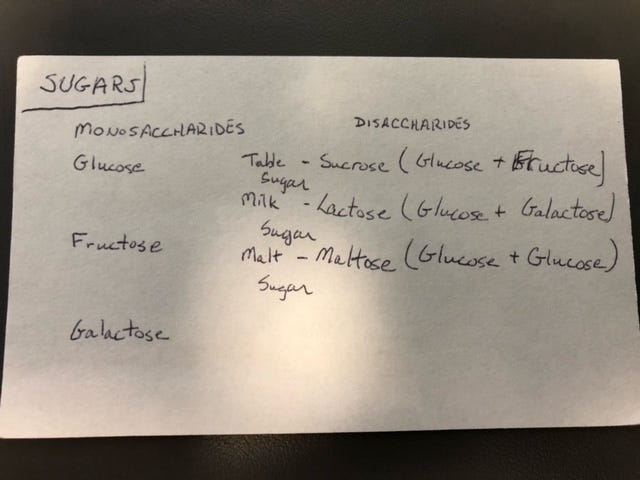 SUGARS
MONOSACCHARIDES DISACCHARIDES
Glucose Table - Sucrose (Glucose + Fructose)
Sugar
Milk - Lactose (Glucose + Galactose)
Sugar
Fructose Malt - Maltose (Glucose + Glucose)
Sugar
Galactose